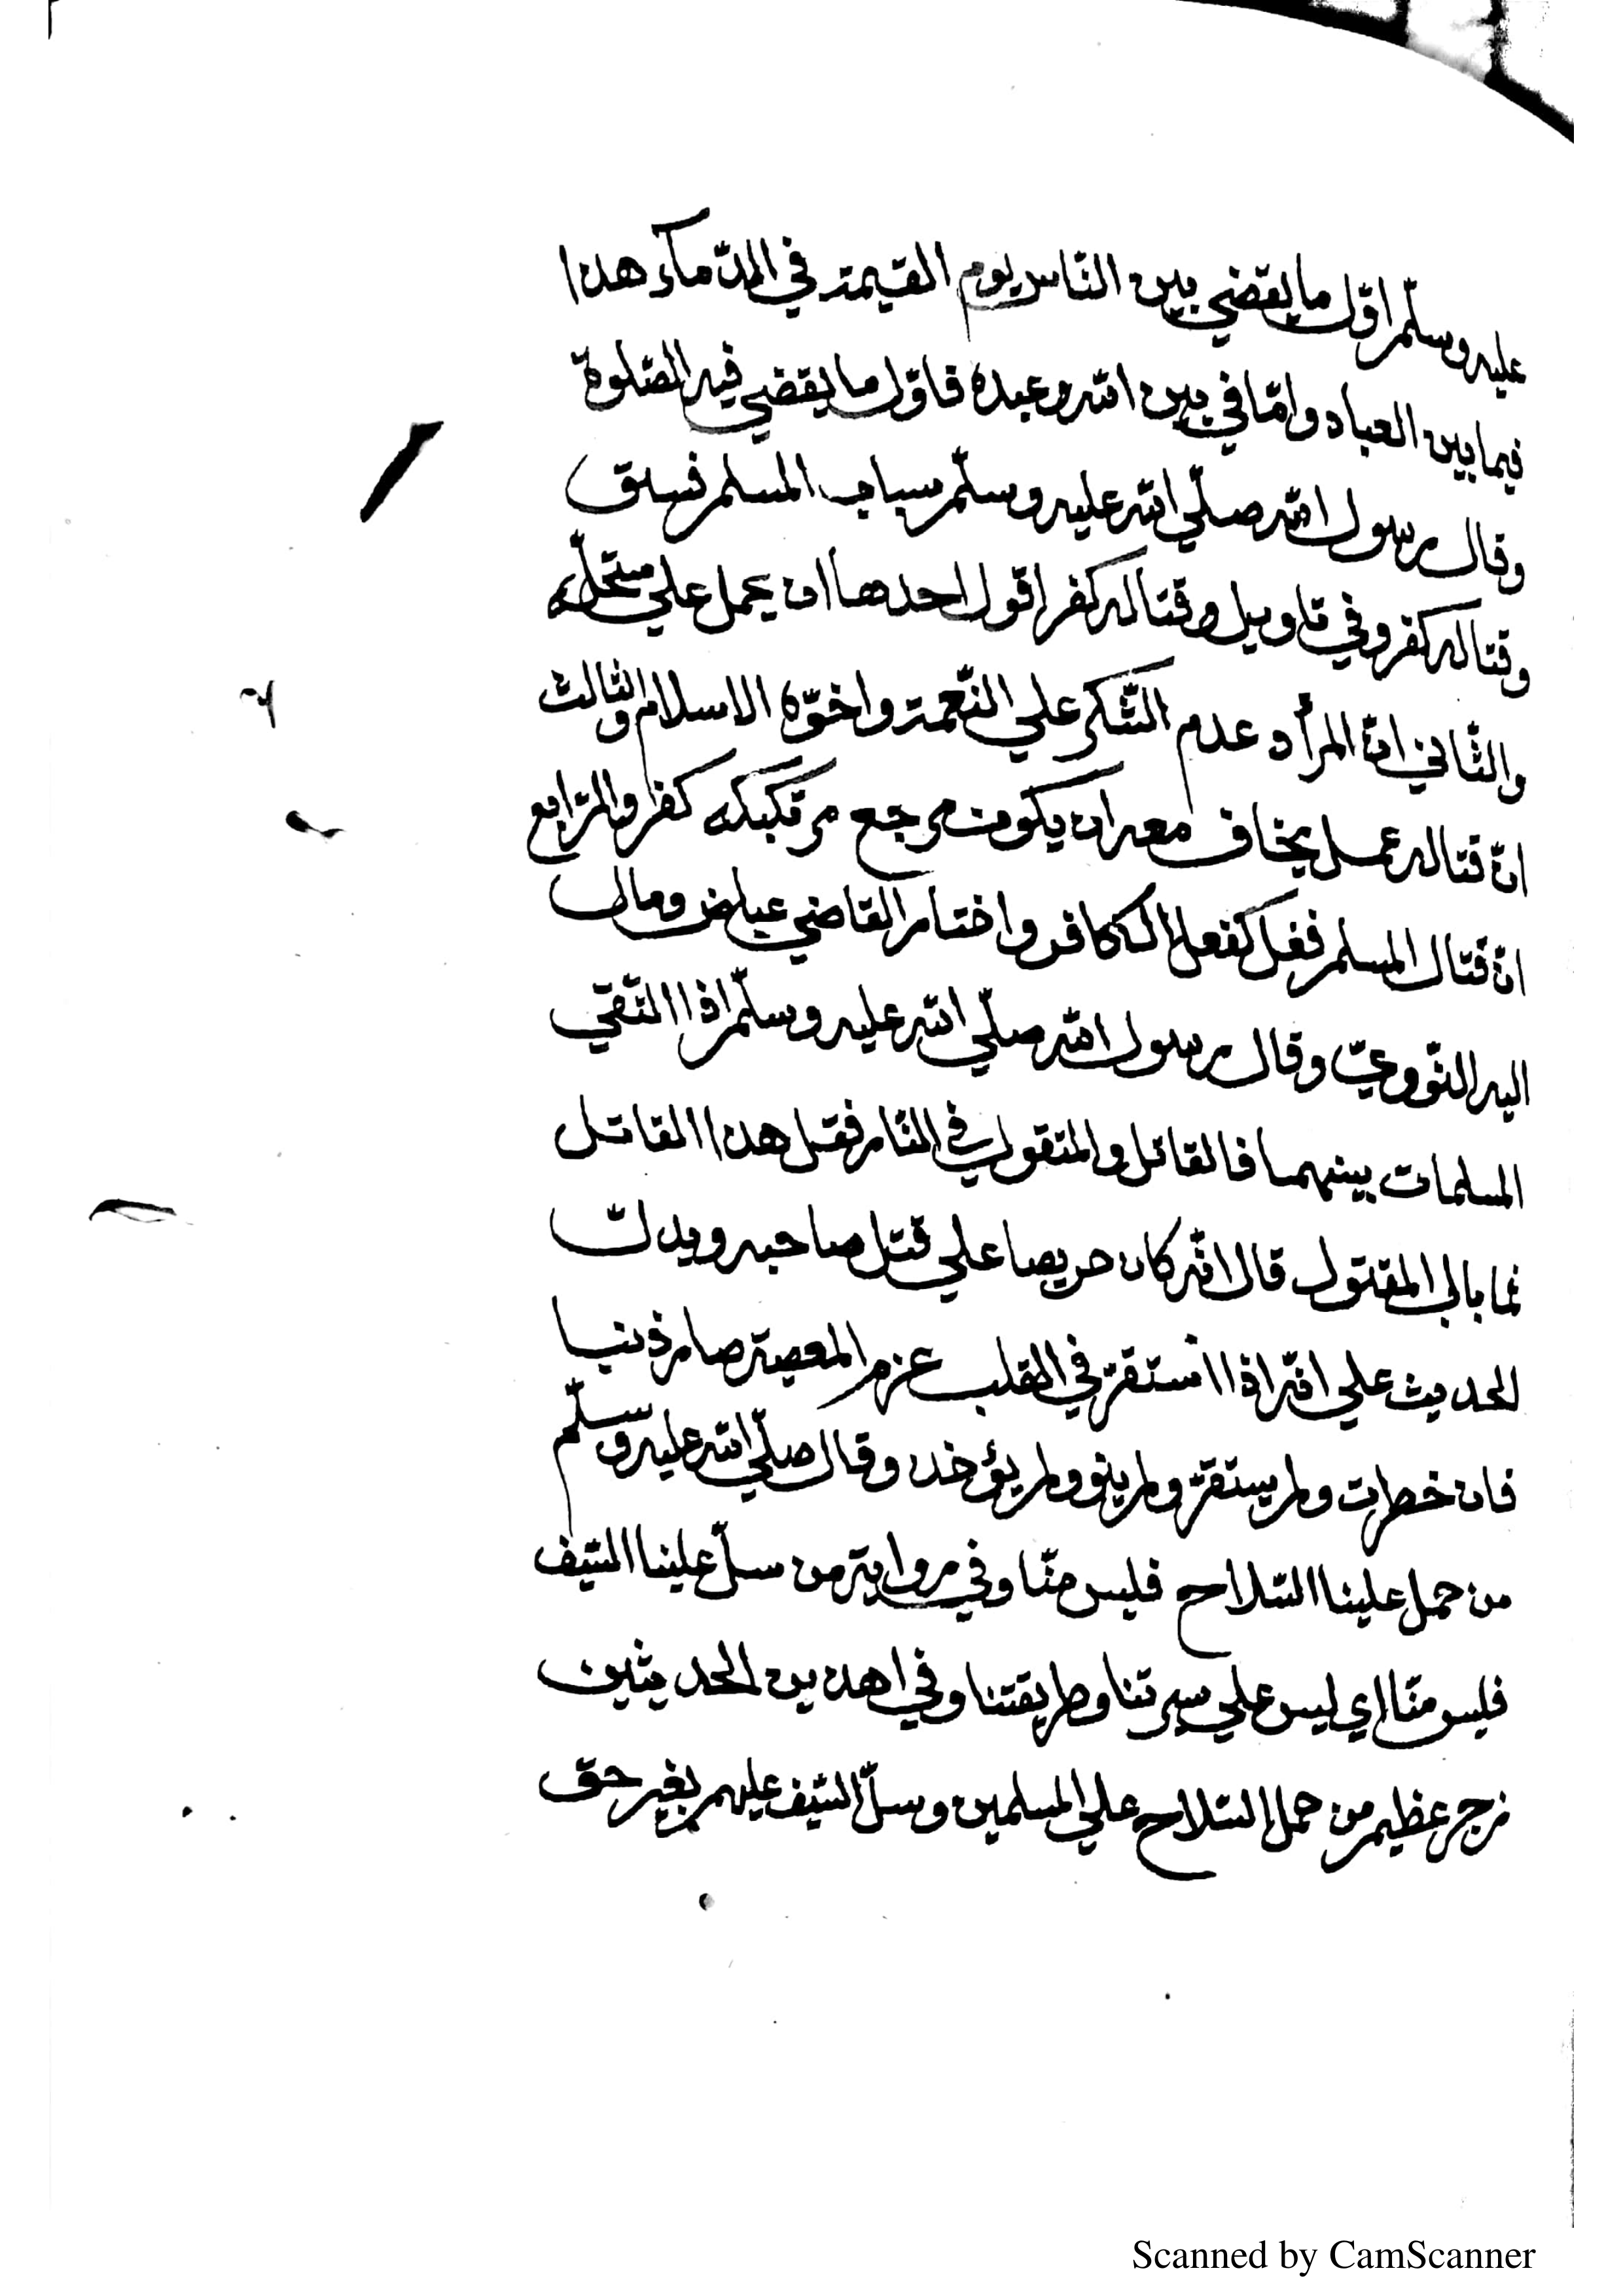 عليه وسلّم اوّل ما يقضي بين النّاس يوم القيمة في الدّمآء هذا
فيما بين العباد وامّا في بين الله وعبده فاوّل ما يقضي فيه الصّلوة
وقال رسول الله صلّي الله عليه وسلّم سباب المسلم فسق
وقتاله كفر وفي تاويل وقتاله كفر اقول احدها ان يحمل علي مستحلّه
والثّاني انّ المرأد عدم الشّكر علي النّعمة واخوّه الاسلام والثالث
انّ قتاله عمل يخاف معه ان يكون مرجع مرتكبكه كفر والرّابع
انّ قتال المسلم ففعل كفعل الكافر واختار القاضي عياض ومال
اليه النّووعيّ وقال رسول الله صلّي الله عليه وسلّم اذا التّقي
المسلمان بينهما فالقاتل والمتقول في النّار فقتل هذا القاتل
فما بالي المقتول قال انّه كان حريصا علي قتل صاحبه ويدلّ
الحديث علي انّه اذا استقرّ في القلب عزم المعصية صار ذنبا
فان خطرت ولم يستقرّ ولم ينو ولم يؤخذ وقال صلّي الله عليه وسلّم
من حمل علينا السّلاح فليس منّا وفي رواية من سلّ علينا السّيف
فليس منّا اي ليس علي سيرتنا وطريقتنا وفي اهذين الحديثين
زجر عظيم من حمل السّلاح علي المسلمين وسلّ السّيف عليهم بغير حق
Scanned by CamScanner